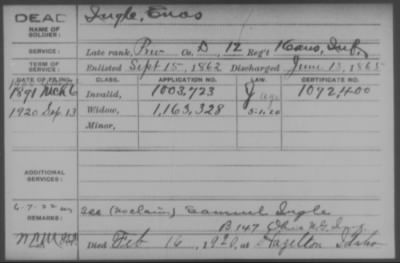 DEAD
NAME OF SOLDIER:
Ingle, Enos
SERVICE:
Late rank, Priv Co. D, 12 Reg't Kans, Inf,
TERM OF SERVICE:
Enlisted Sept 15, 1862 Discharged June 13, 1865
DATE OF FILING. CLASS. APPLICATION NO. LAW. CERTIFICATE NO.
1891 Mch 6 Invalid, 1003,723 1072,400
1920 Sep. 13 Widow, 1,163,328
Minor,
ADDITIONAL SERVICES:
6-7-22
REMARKS:
see (no claim) Samuel Ingle
B 147
Died Feb 16, 1920, at Hazelton Idaho